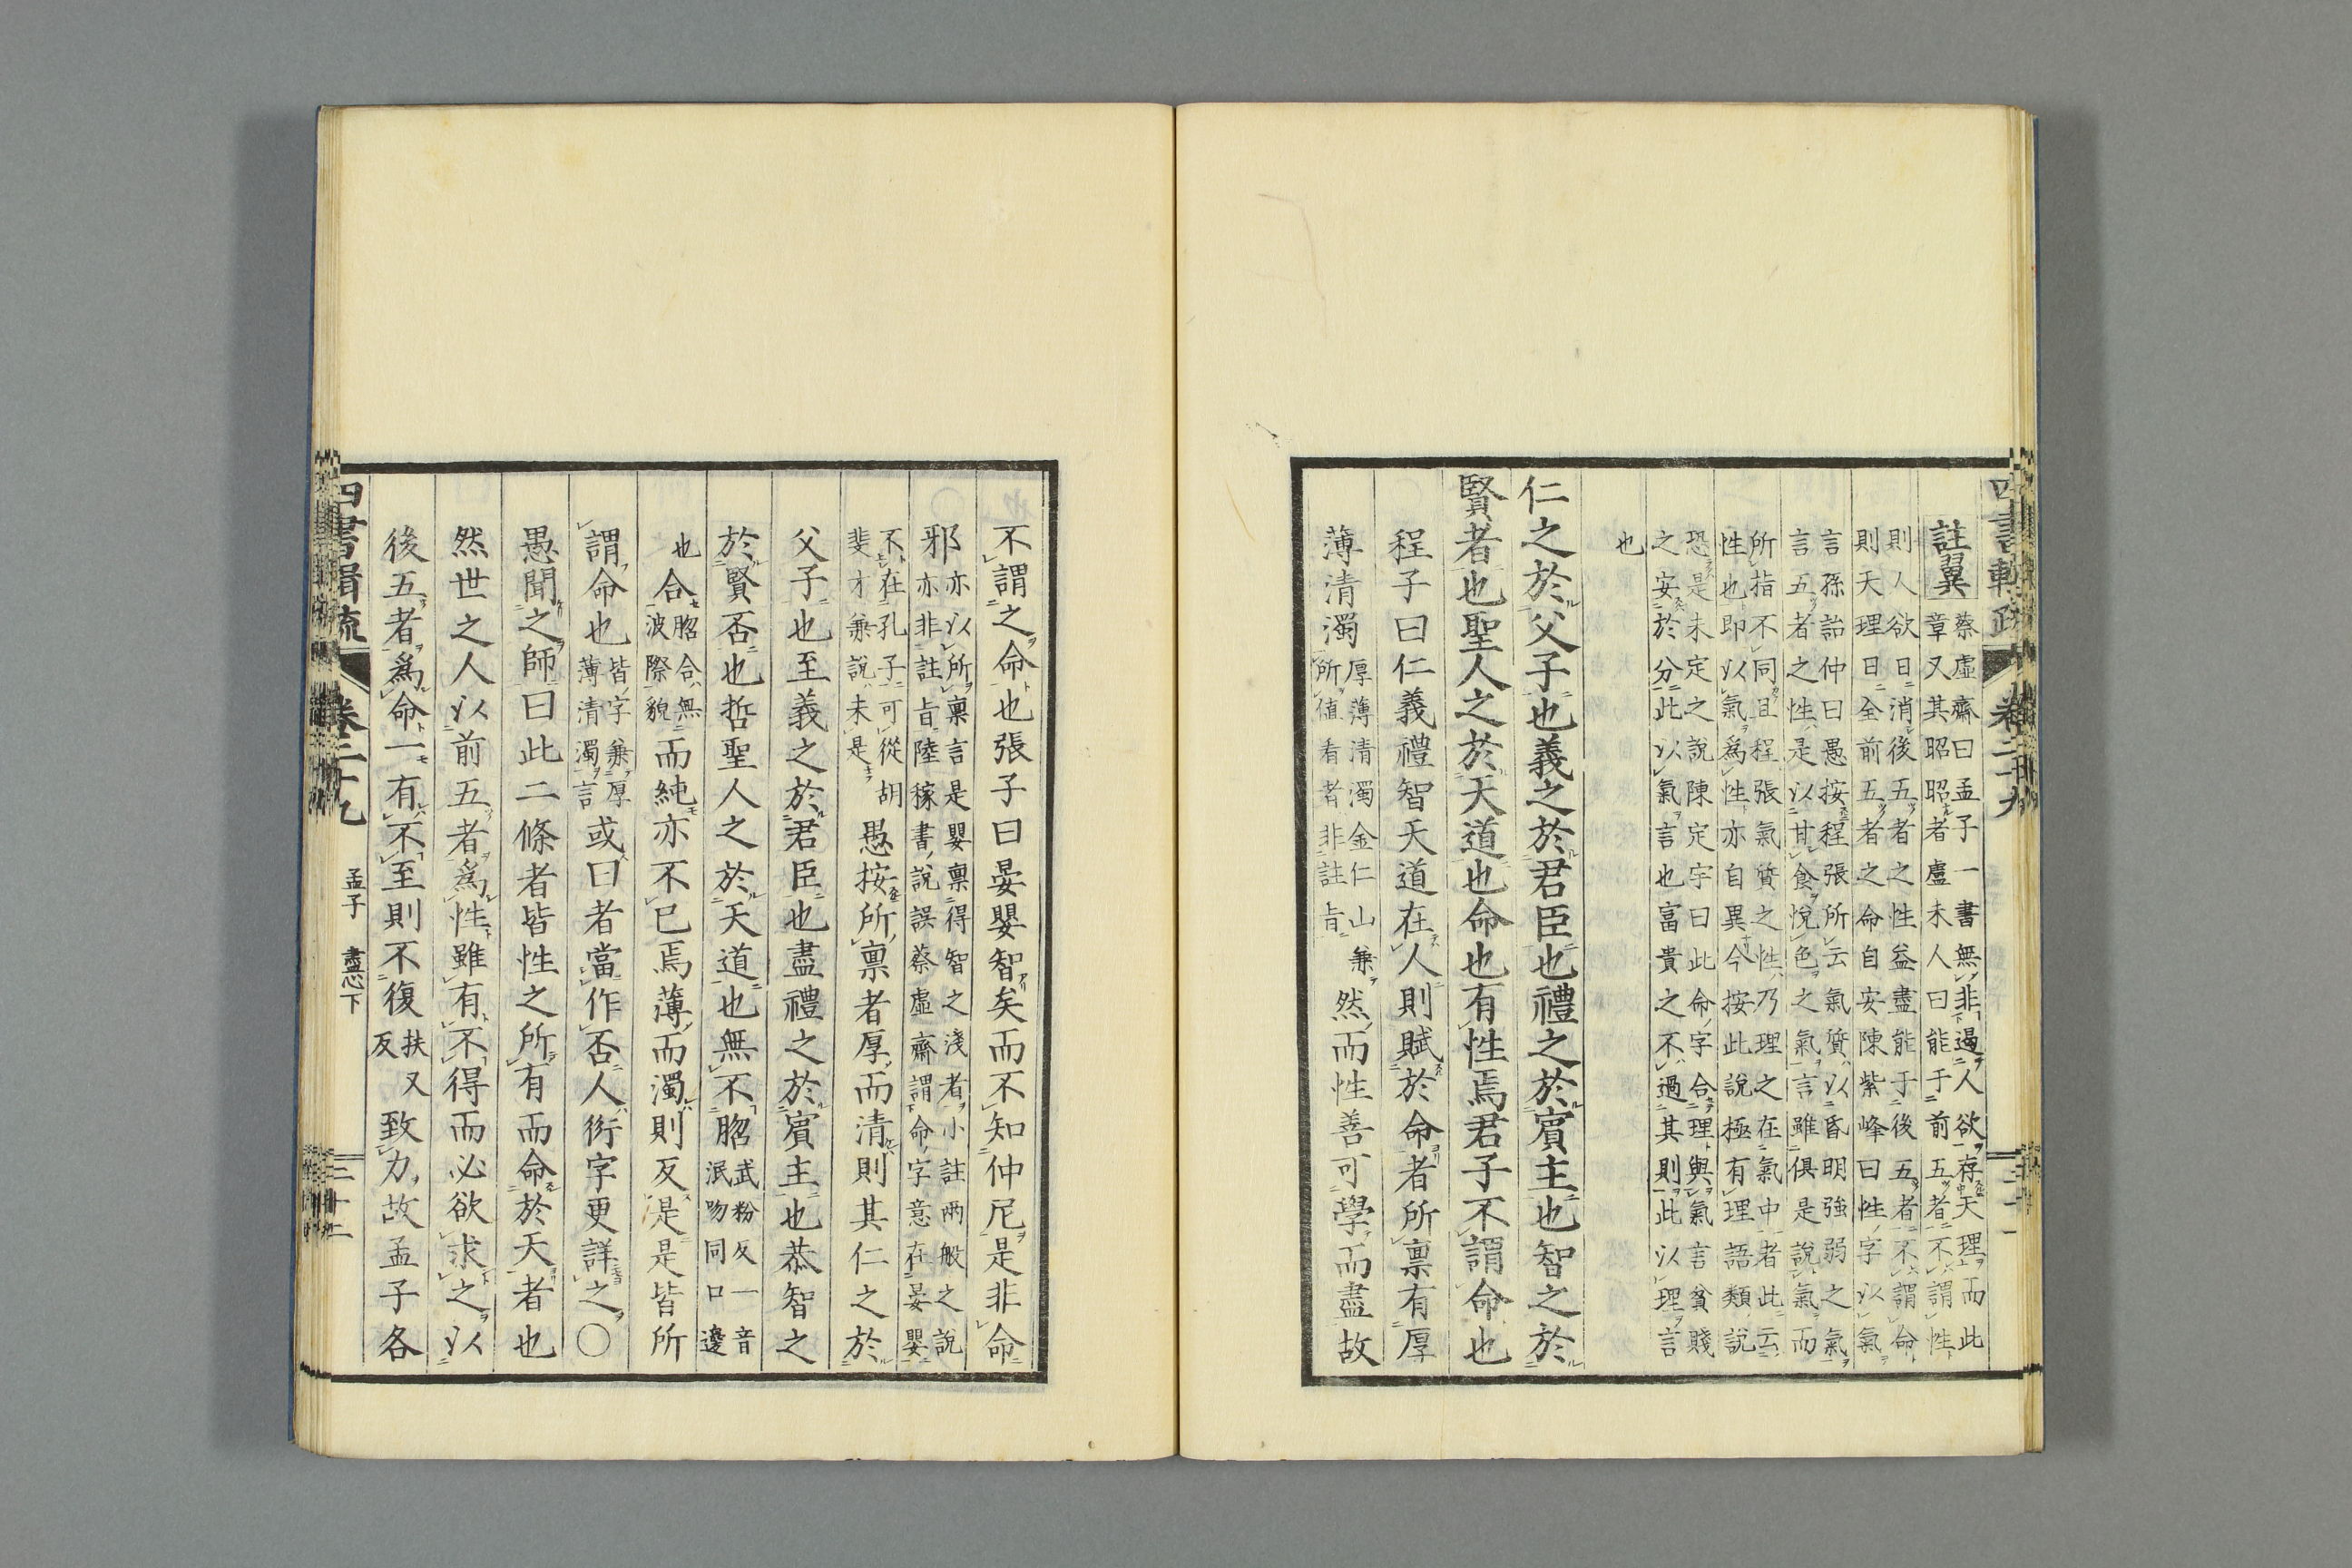 四書輯疏 卷二十九 三十一
註翼 蔡虛齋曰孟子一書無非遏人欲存天理而此
章又其昭昭者盧未人曰能于前五者不謂性
則人欲日消後五者之性益盡能于後五者不謂命
則天理日全前五者之命自安陳紫峰曰性字以氣
言孫詒仲曰愚按程張所云氣質以昏明強弱之氣
言五者之性是以甘食悅色之氣言雖俱是說氣而
所指不同且程張氣質之性乃理之在氣中者此云
性也即以氣爲性亦自異今按此說極有理語類說
恐是未定之說陳定宇曰此命字合理與氣言貧賤
之安於分此以氣言也富貴之不過其則此以理言
也
仁之於父子也義之於君臣也禮之於賓主也智之於
賢者也聖人之於天道也命也有性焉君子不謂命也
程子曰仁義禮智天道在人則賦於命者所稟有厚
薄清濁厚薄清濁金仁山兼所値看者非註旨然而性善可學而盡故
不謂之命也張子曰晏嬰智矣而不知仲尼是非命
邪亦以所稟言是嬰稟得智之淺者小註兩般之說亦非註旨陸稼書說誤蔡虛齋謂命字意在晏嬰
不在孔子可從胡斐才兼說未是愚按所稟者厚而清則其仁之於
父子也至義之於君臣也盡禮之於賓主也恭智之
於賢否也哲聖人之於天道也無不脗武粉反一音泯吻同口邊
也合脗合無波際貌而純亦不已焉薄而濁則反是是皆所
謂命也皆字兼厚薄清濁言或曰者當作否人衍字更詳之〇
愚聞之師曰此二條者皆性之所有而命於天者也
然世之人以前五者爲性雖有不得而必欲求之以
後五者爲命一有不至則不復扶又反致力故孟子各
四書輯疏 卷二十九 孟子 盡心下 三十二